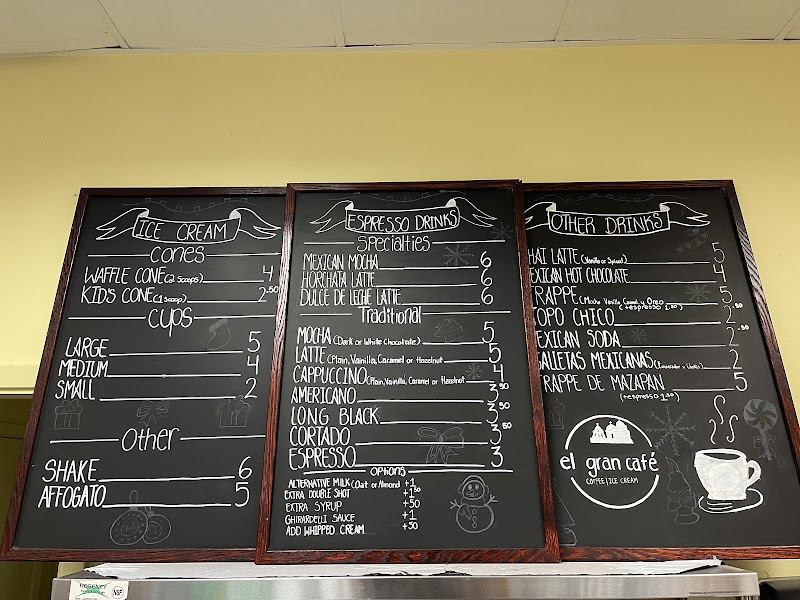 ICE CREAM
cones
WAFFLE CONE (2 scoops) 4
KID'S CONE (1 scoop) 2.50
cups
LARGE 5
MEDIUM 4
SMALL 2
Other
SHAKE 6
AFFOGATO 5
ESPRESSO DRINKS
Specialties
MEXICAN MOCHA 6
HORCHATA LATTE 6
DULCE DE LECHE LATTE 6
Traditional
MOCHA (Dark or White Chocolate) 5
LATTE (Plain, Vainilla, Caramel or Hazelnut 5
CAPPUCCINO (Plain, Vainilla, Caramel or Hazelnut 4
AMERICANO 3.50
LONG BLACK 3.50
CORTADO 3.50
ESPRESSO 3
Options
ALTERNATIVE MILK (Oat or Almond) +1
EXTRA DOUBLE SHOT +1.50
EXTRA SYRUP +50
GHIRARDELLI SAUCE +1
ADD WHIPPED CREAM +50
OTHER DRINKS
HAI LATTE (Vanilla or Spiced) 5
EXICAN HOT CHOCOLATE 4
RAPPE (Mocha Vanilla Caramel y Oreo 5
(+espresso 1.50)
OPO CHICO 2.50
EXICAN SODA 2.50
ALLETAS MEXICANAS 2
RAPPE DE MAZAPAN 5
(+espresso 1.50)
el gran café
COFFEE | ICE CREAM
REGENCY
NSF